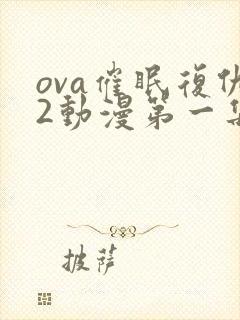 ova催眠復仇
2動漫第一集
披薩